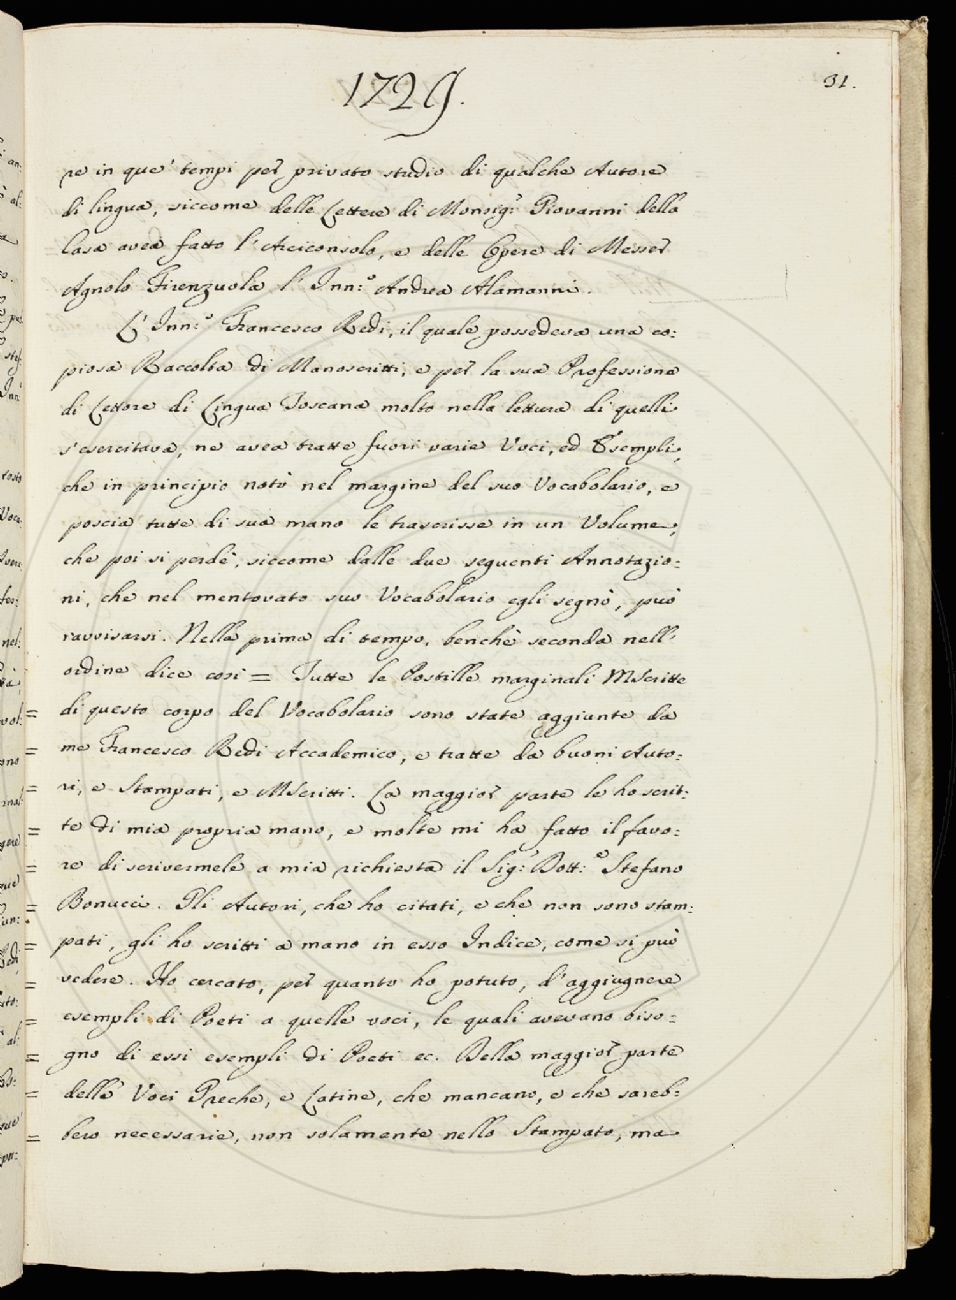 1729.
31.
re in que' tempi per privato studio di qualche Autore
di lingua, siccome delle Lettere di Monsig.r Giovanni della
Casa avea fatto l'Arciconsolo, e delle Opere di Messer
Agnolo Firenzuola l'Inn.o Andrea Alamanni.
L'Inn.o Francesco Redi, il quale possedeva una co:
piosa Raccolta di Manoscritti, e per la sua Professione
di Lettore di Lingua Toscana molto nella lettura di quelli
s'esercitava, ne avea tratte fuori varie Voci, ed Esempli,
che in principio notò nel margine del suo Vocabolario, e
poscia tutte di sua mano le trascrisse in un Volume,
che poi si perdè, siccome dalle due seguenti Annotazio:
ni, che nel mentovato suo Vocabolario egli segnò, può
ravvisarsi. Nella prima di tempo, benchè seconda nell'
ordine dice così = Tutte le Postille marginali MScritte
= di questo corpo del Vocabolario sono state aggiunte da
= me Francesco Redi Accademico, e tratte da buoni Auto:
= ri, e Stampati, e MScritti. La maggior parte le ho scrit:
= te di mia propria mano, e molte mi ha fatto il favo:
= re di scrivermele a mia richiesta il Sig.r Dott.e Stefano
= Bonucci. Gli Autori, che ho citati, e che non sono stam:
= pati, gli ho scritti a mano in esso Indice, come si può
= vedere. Ho cercato, per quanto ho potuto, d'aggiugnere
= esempli di Poeti a quelle voci, le quali avevano biso:
= gno di essi esempli di Poeti ec. Della maggior parte
= delle Voci Greche, e Latine, che mancano, e che sareb:
= bero necessarie, non solamente nello Stampato, ma